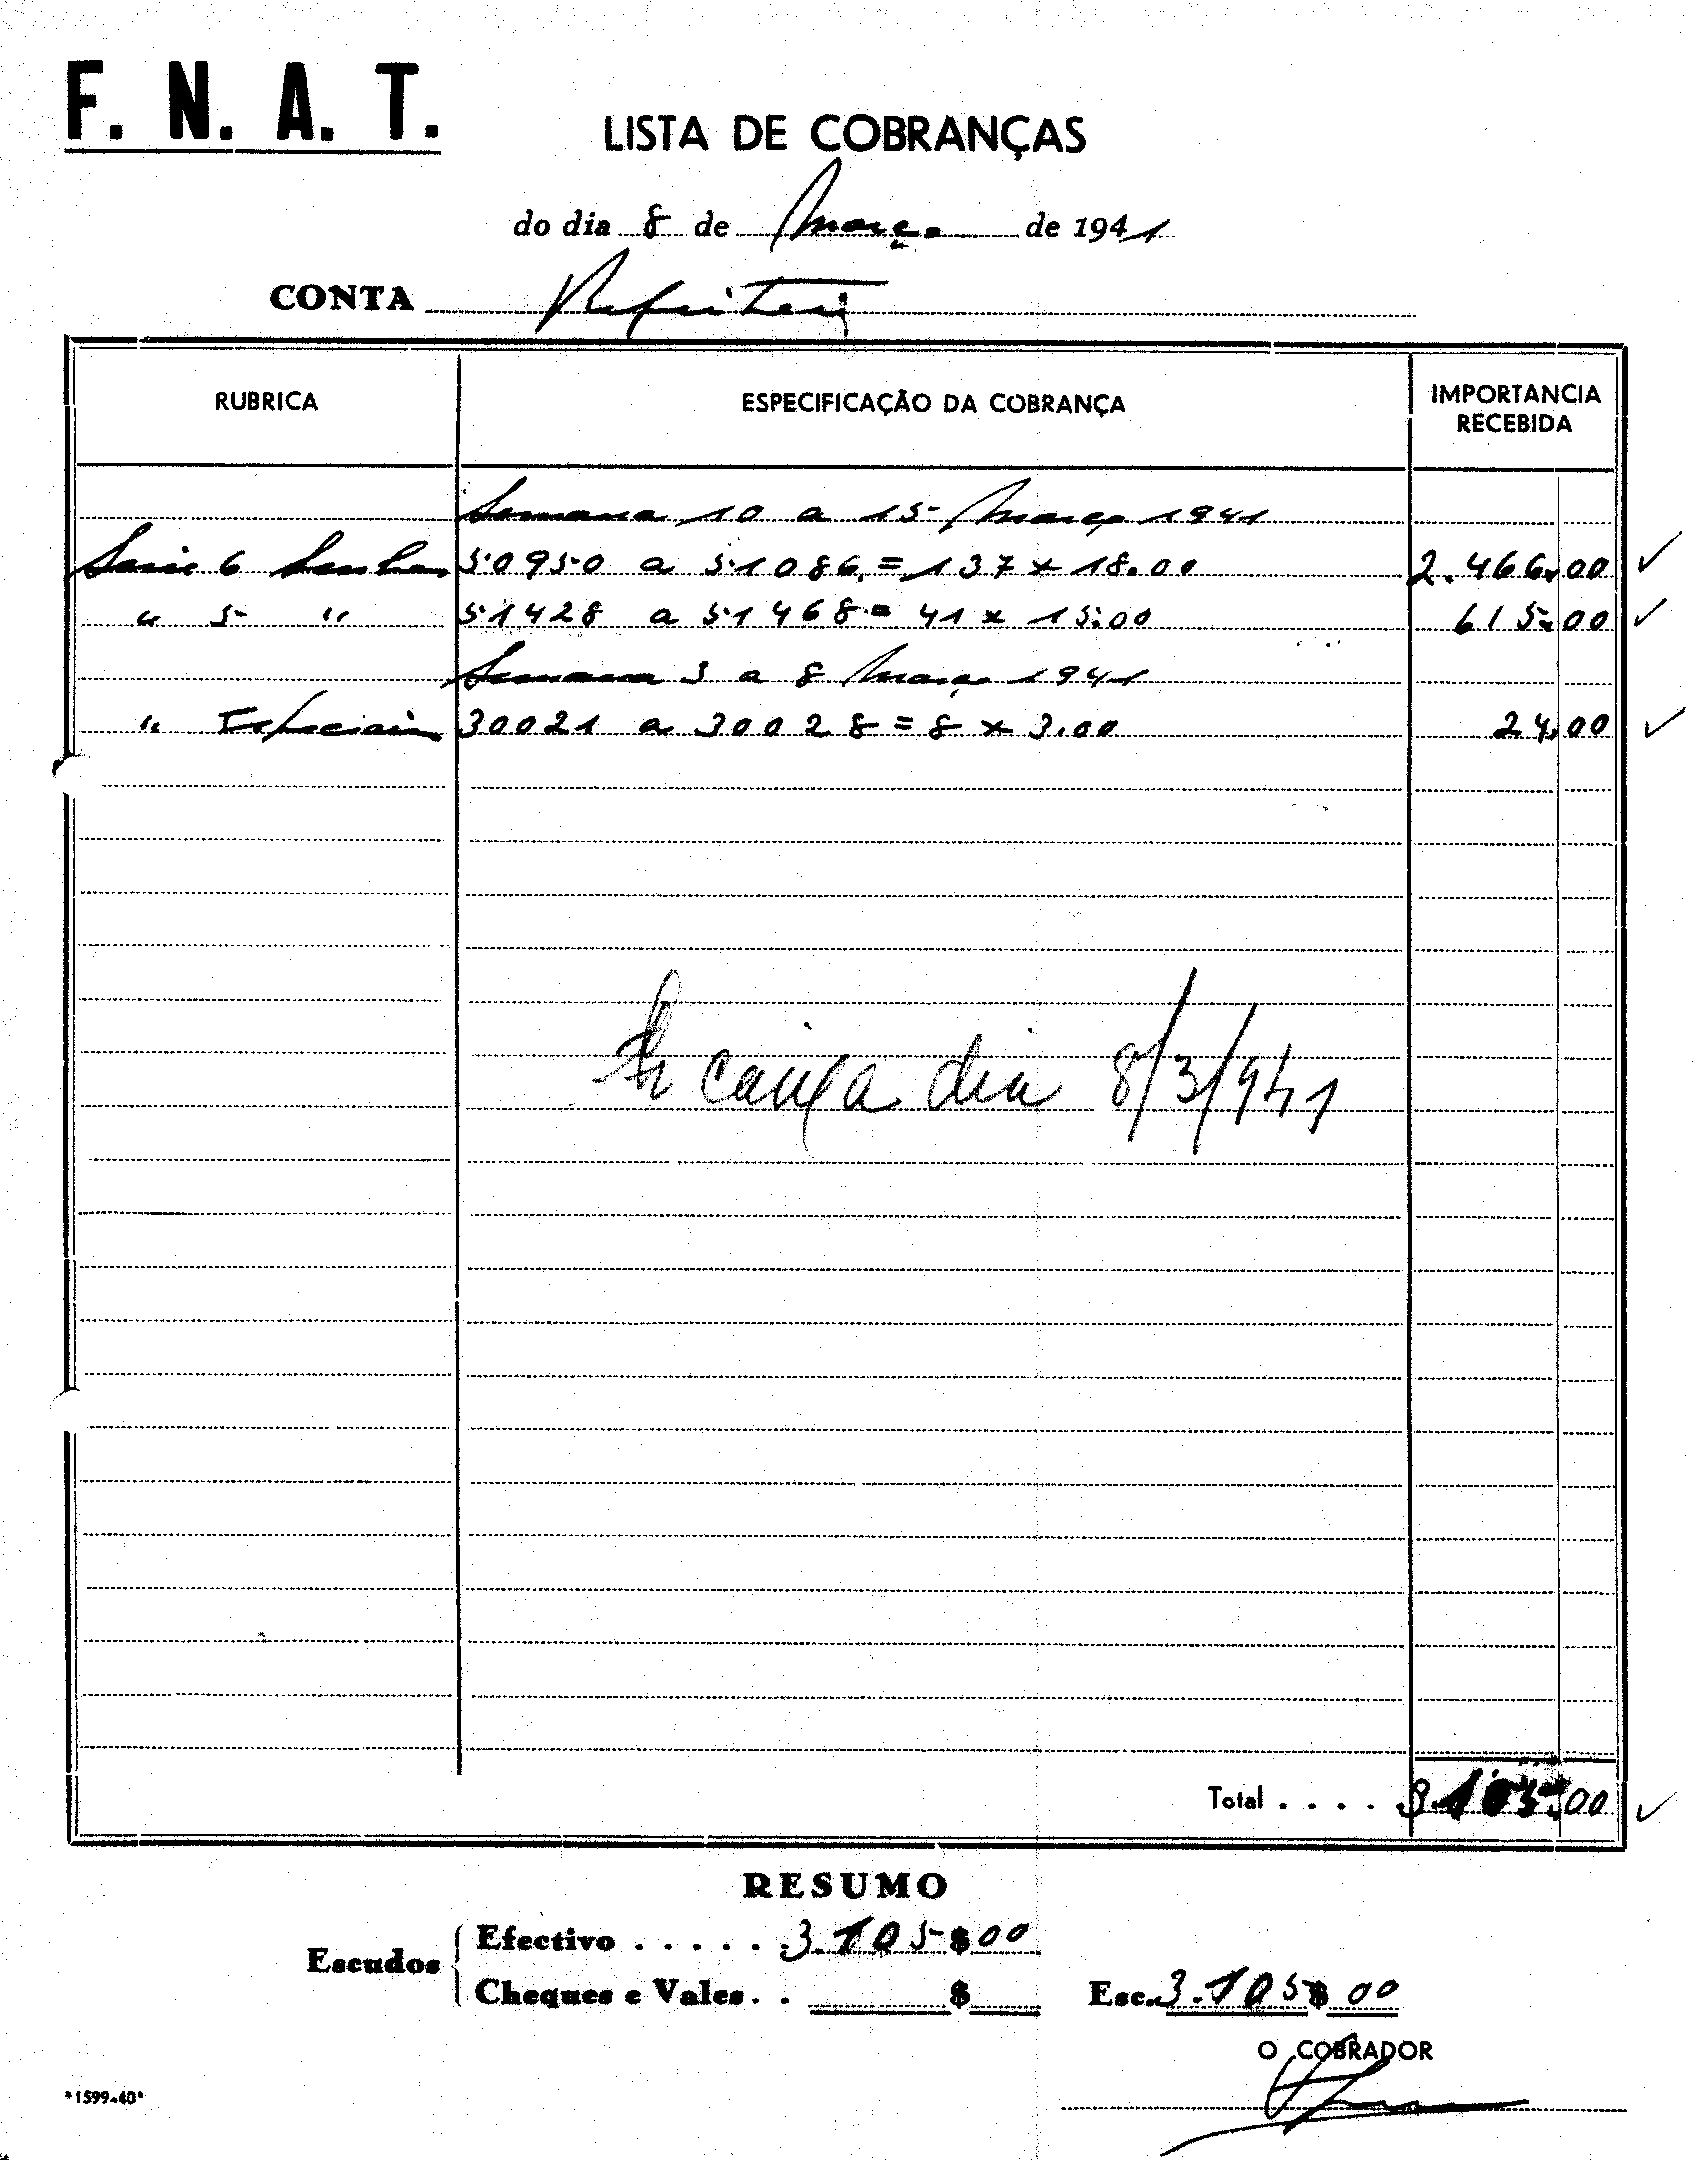 F. N. A. T.
LISTA DE COBRANÇAS
do dia 8 de Março de 1941
CONTA
RUBRICA ESPECIFICAÇÃO DA COBRANÇA IMPORTANCIA RECEBIDA
Semana 10 a 15 Março 1941
Serie 6 Senhas 50950 a 51086 = 137 x 18.00 2.466.00 ✓
" 5 " 51428 a 51468 = 41 x 15.00 615.00 ✓
Semana 3 a 8 Março 1941
" Especiais 30021 a 30028 = 8 x 3.00 24.00 ✓
caixa dia 8/3/941
Total . . . . 3.105.00 ✓
RESUMO
Escudos
Efectivo . . . . . . 3.105$00
Cheques e Vales . . $ Esc. 3.105$00
O COBRADOR
*1599-40*